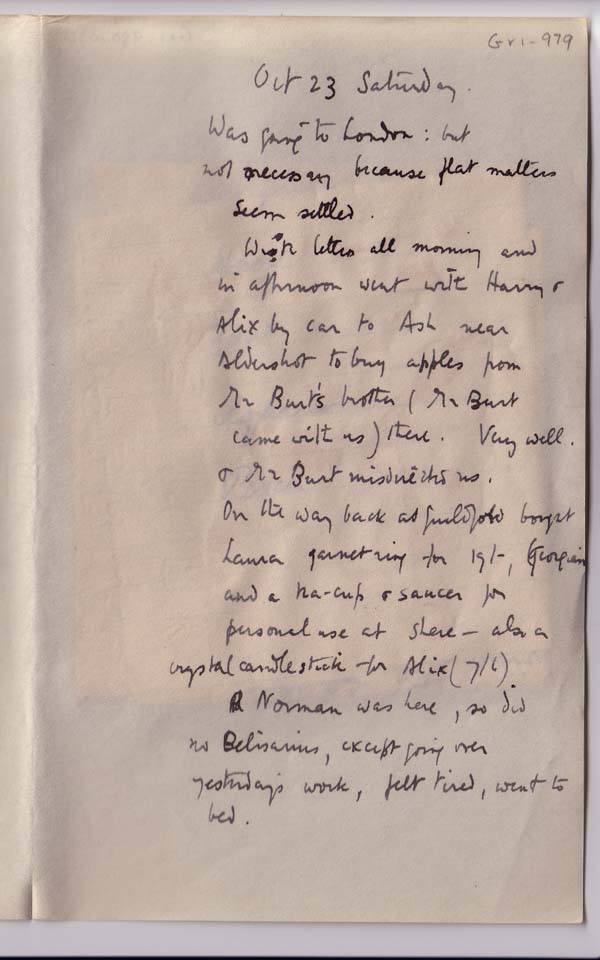 Gri-979
Oct 23 Saturday.
Was going to London: but
not necessary because flat matters
seem settled.
Wrote letters all morning and
in afternoon went with Harry &
Alix by car to Ash near
Aldershot to buy apples from
Mr Burt's brother (Mr Burt
came with us) there. Very well.
& Mr Burt misdirected us.
On the way back at Guildford bought
Laura garnet ring for 19/-, Georgian
and a tea-cup & saucer for
personal use at Shere – also a
crystal candlestick for Alix (7/6)
Norman was here, so did
no Belisarius, except going over
yesterday's work, felt tired, went to
bed.